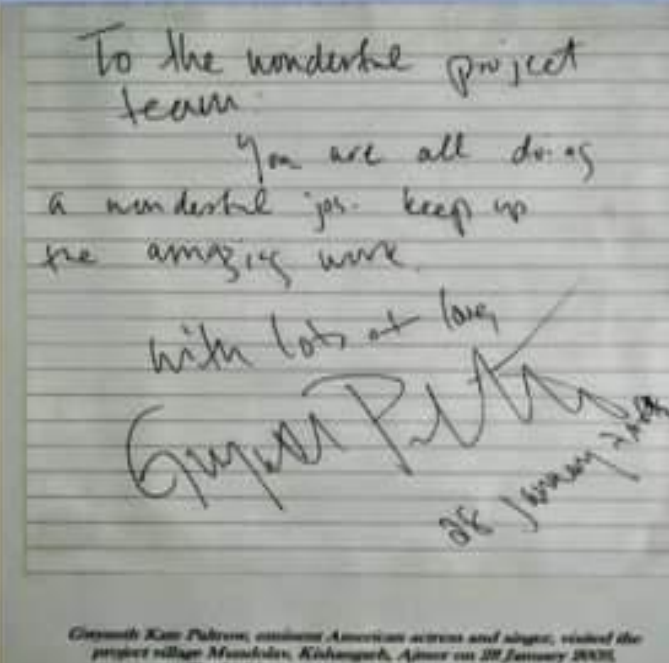 To the wonderful project
team.
You are all doing
a wonderful job. keep up
the amazing work.
with lots of love,
Gwyneth Paltrow
28 January
Gwyneth Kate Paltrow, eminent American actress and singer, visited the
project village Mundolav, Kishangarh, Ajmer on 28 January 2008.